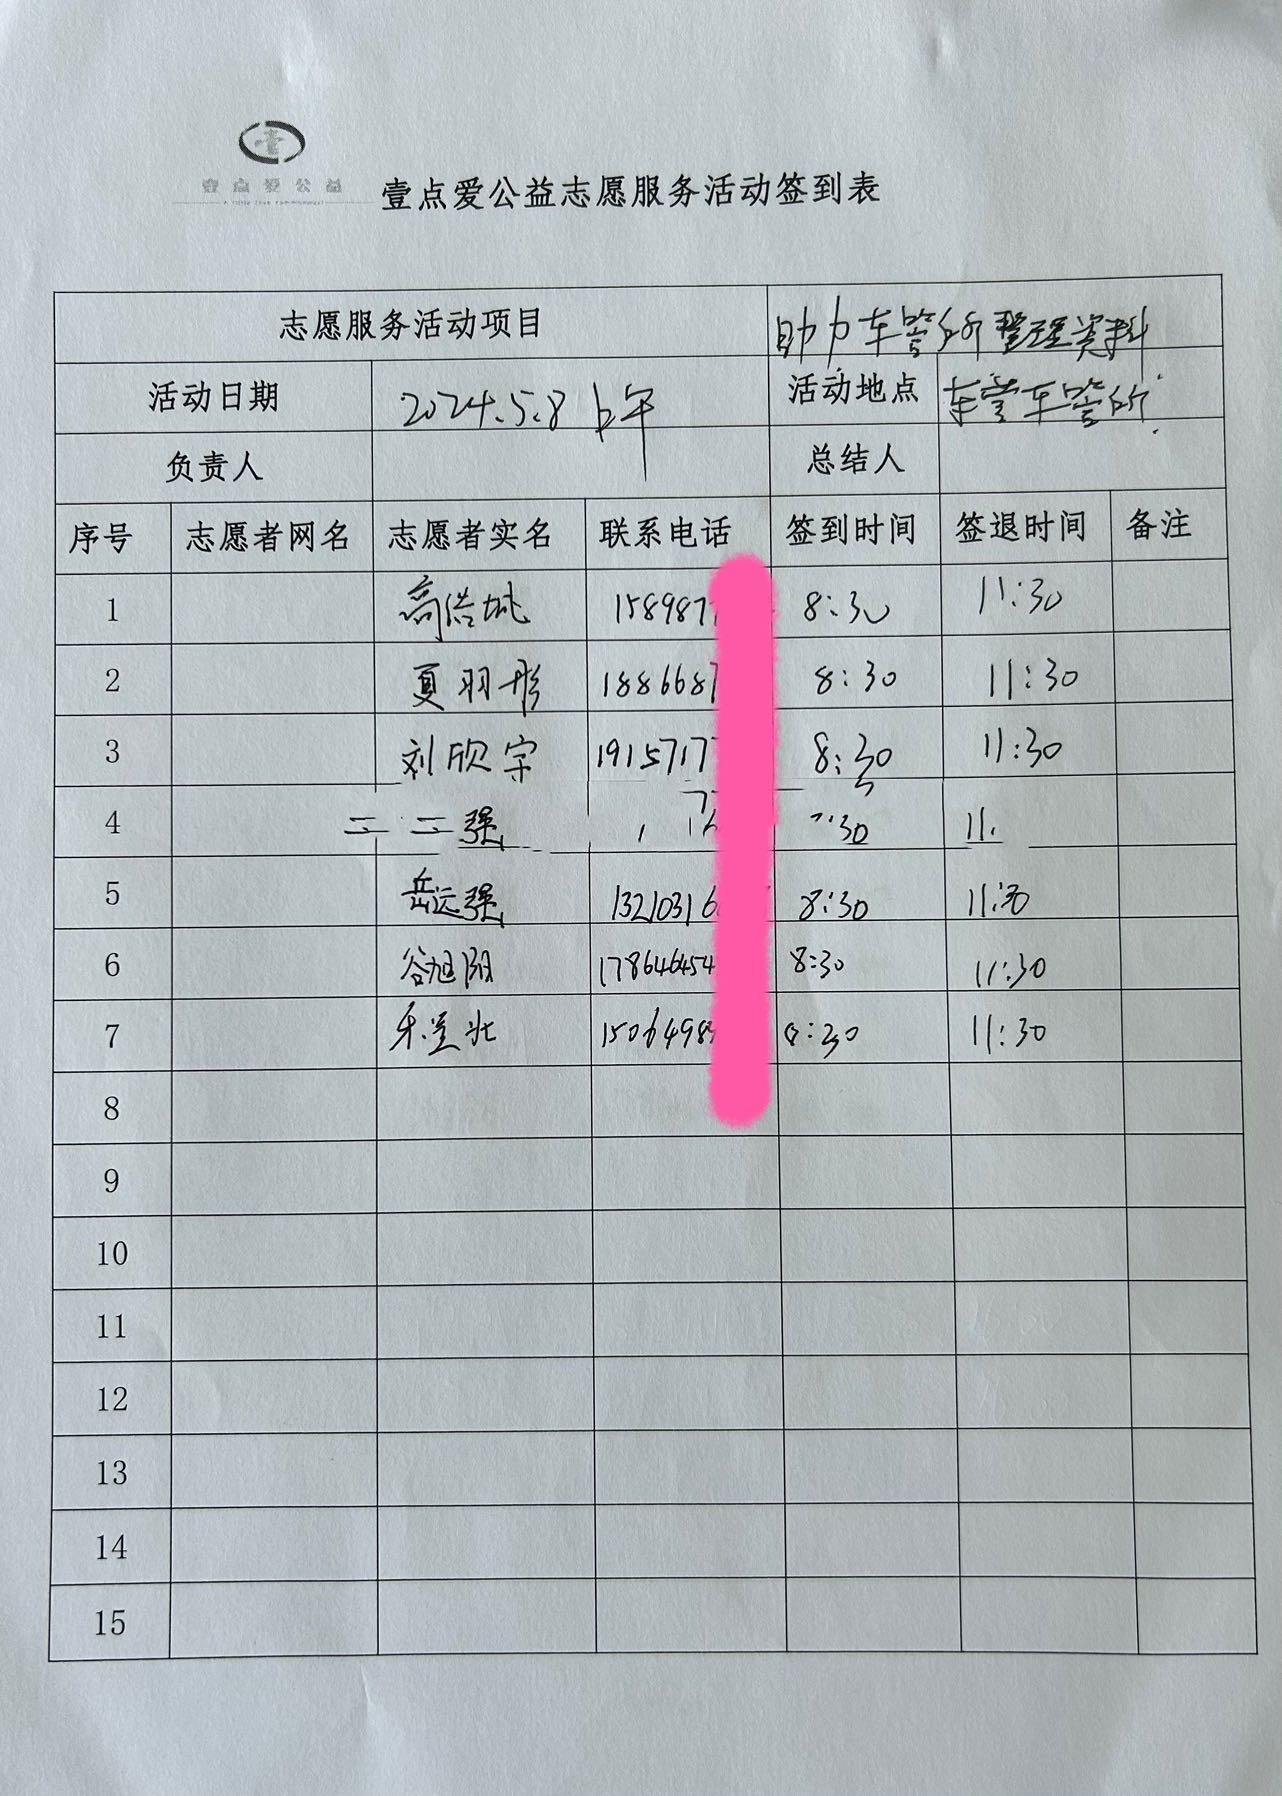 壹
壹点爱公益
壹点爱公益志愿服务活动签到表
志愿服务活动项目 助力车管所整理资料
活动日期 2024.5.8 上午 活动地点 车管所
负责人 总结人
序号 志愿者网名 志愿者实名 联系电话 签到时间 签退时间 备注
1 高浩 158987 8:30 11:30
2 夏羽彤 1886687 8:30 11:30
3 刘欣宗 1915717 8:30 11:30
4 强 :30 11.
5 岳远强 1321031 8:30 11:30
6 谷旭阳 178646454 8:30 11:30
7 1506498 8:30 11:30
8
9
10
11
12
13
14
15